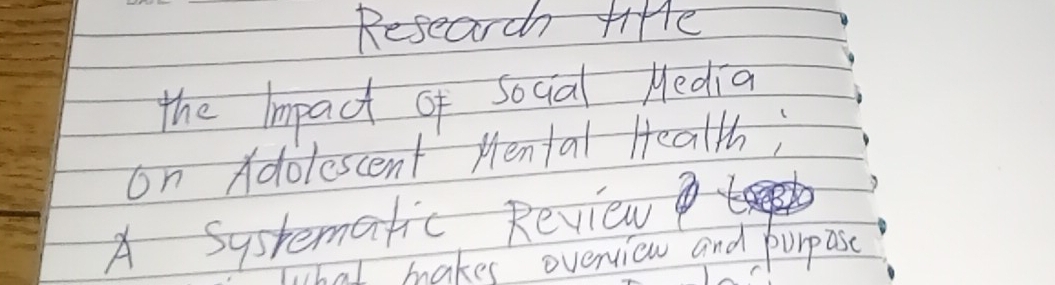 Research title
the Impact Of Social Media
on Adolescent Mental Health;
A Systematic Review
what makes overview and purpose